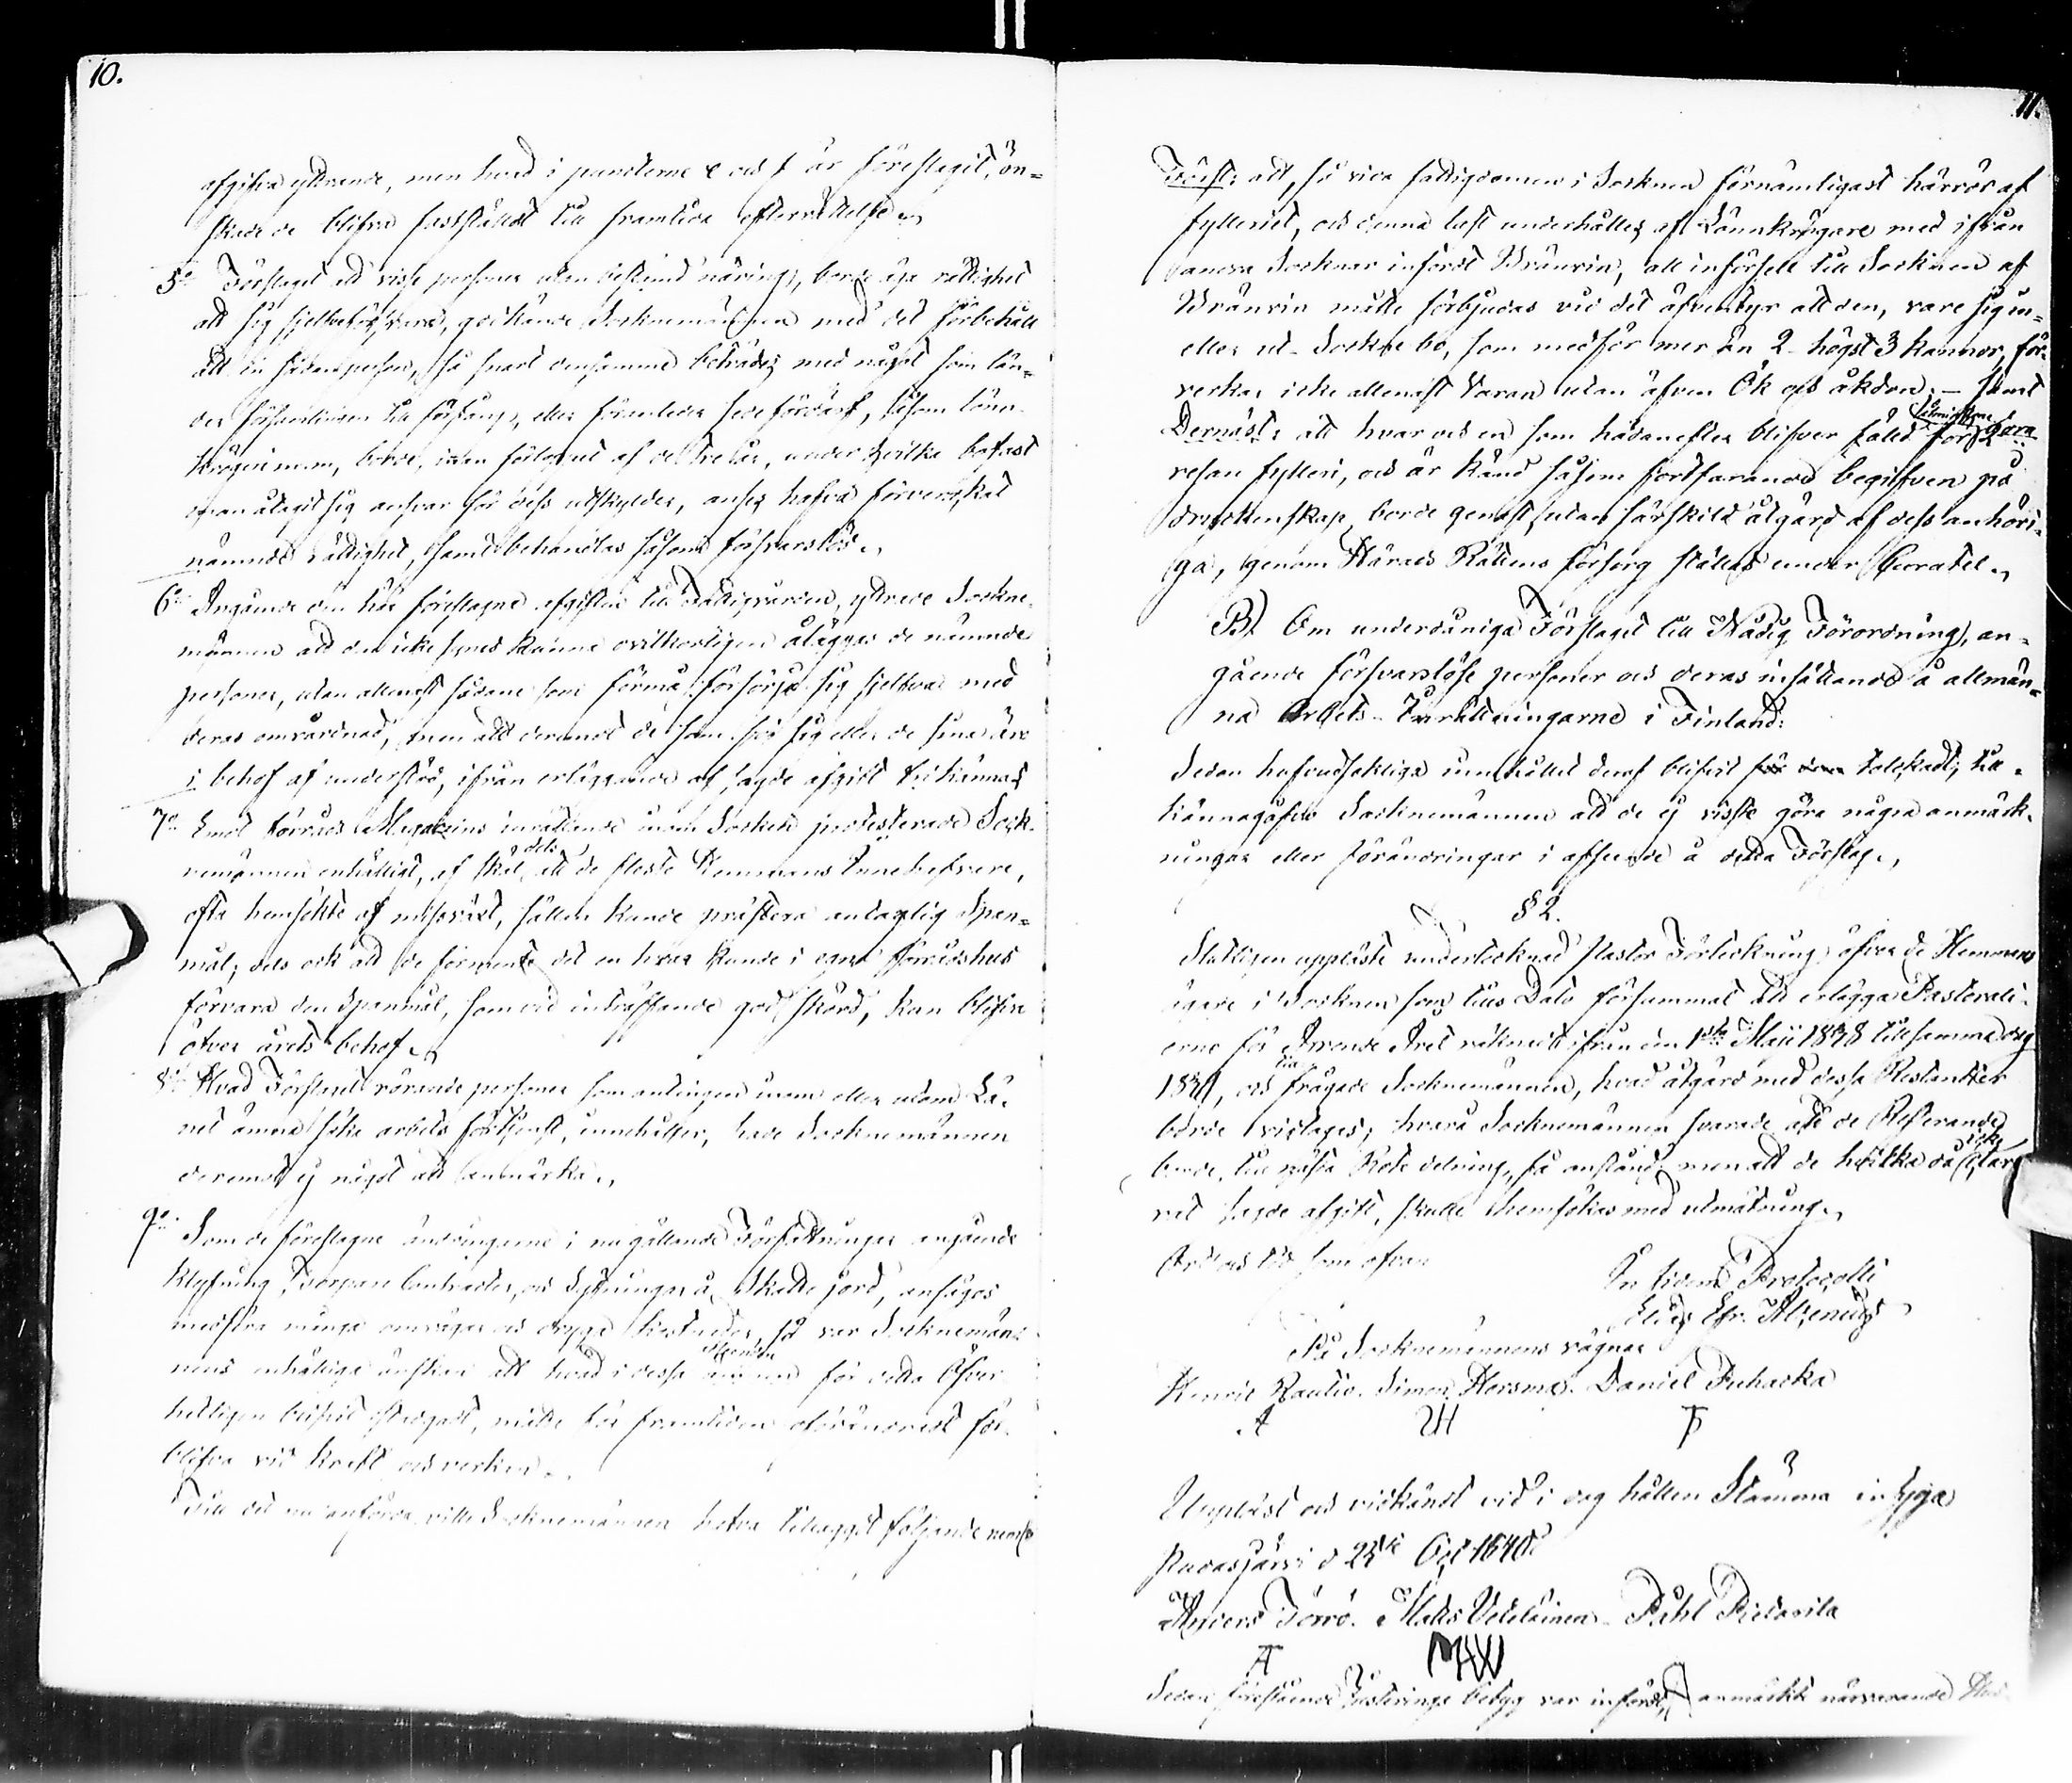 10.
afgifva yttrande, men hvad i puncterne e och f är föreslagit, ön=
skade de blifva fastställdt till framtida efterrättelse.,
5o Förslaget att visse personer utan bestämd näring, borde äga rättighet
att sig sjelfve försvara, godkände Socknemännen med det förbehåll
att en sådan person, så snart densamme beträdes med något som län=
der församlingen till förfång, eller föranleder sedeförderf, såsom lönn-
krögeri m.m., borde, innan förloppet af de tre år, under hvilka bofast
man åtagit sig ansvar för dess utskylder, anses hafva förverkat
nämnde rättighet, samt behandlas såsom försvarslös.,
6o Angående den här föreslagne afgiften till Fattigvården, yttrade Sockne-
männen att den icke synes kunna ovilkorligen åläggas de nämnde
personer, utan allenast sådane som förmå försörja sig sjelfva med
deras omvårdnad, men att deremot de som för sig eller de sina äro
i behof af understöd, ifrån erläggande af sagde afgift frikännas
7o Emot Förråds Magazins inrättande inom Socken protesterade Sock-
nemännen enhälligt, af skäl, dels att de fleste Hemmans Innehafvare,
ofta hemsökte af missväxt, sällan kunde prästera antaglig Span=
mål; dels ock att de förmente det en hvar kunde i egna förrådshus
förvara den Spanmål, som vid inträffande god skörd, kan blifva
öfver årets behof.,
8o Hvad Förslaget rörande personer som antingen inom eller utom Lä-
net ämna söka arbets förtjenst, innehåller, hade Socknemännen
deremot ej något att anmärka.,
9o Som de föreslagne ändringarne i nu gällande Författningar angående
klyfning, Torpare Contracter, och Sytningar å Skatte jord, ansågos
medföra många omvägar och dryga kostnader, så var Socknemän-
nens enhälliga önskan att hvad i dessa ämnen för detta Öfver
heten blifvit stadgadt, måtte för framtiden oförändradt för-
blifva vid kraft och verkan.,
Till det nu anförda ville Socknemännen hafva tillaggdt följande nemligen
11.
Först: att, så vida fattigdomen i Socknen förnämligast härrör af
fylleriet, och denna last underhålles af Lönnkrögare med ifrån
andra Socknar infördt Bränvin, all införsel till Socknen af
Bränvin måtte förbjudas vid det äfventyr att den, vare sig in=
eller ut-Sockne bo, som medför mer än 2 högst 3 kannor, för-
verkar icke allenast Varan utan äfven Ök och åkdon; — samt
Dernäst: att hvar och en som hädanefter blifver fälld för andra
resan fylleri, och är känd såsom fortfarande begifven på
dryckenskap, borde genast, utan särskild åtgärd af dess anhöri-
ga, genom Härads Rättens försorg ställas under Curatel.,
B). Om underdåniga Förslaget till Nådig Förordning, an=
gående försvarslöse personer och deras insättande å allmän=
na Arbets-Inrättningarne i Finland:
Sedan hufvudsakliga innehållet deraf blifvit tolkadt, till-
kännagåfvo Socknemännen att de ej visste göra några anmärk-
ningar eller förändringar i afseende å detta Förslag.,
§ 2.
Slutligen uppläste undertecknad Pastor Förteckning öfver de Hemmans
ägare i Socknen som tills Dato försummat att erlägga Pastorali-
erne för Arrende Året räknadt ifrån den 1sta Maji 1838 till samma dag
1839, och tillfrågade Socknemännen, hvad åtgärd med dessa Restantier
borde vidtagas; hvarå Socknemännen svarade att de Resterande
borde, till nästa Rote delning, få anstånd; men att de hvilka då icke clare-
rat sagde afgift, skulle hemsökas med utmätning.,
Ort och tid som ofvan
In fidem Protocolli
Elias Efr. Alcenius
På Socknemännens vägnar
Henric Rautio. Simon Horsma. Daniel Puhacka
Uppläst och vidkändt vid i dag hållen Stämma intygar
Pudasjärvi d 25te Oct 1840.
Anders Törrö. Matts Veteläinen. Påhl Pietarila
Sedan förestående Justerings betyg var infördt, anmärkte närvarande